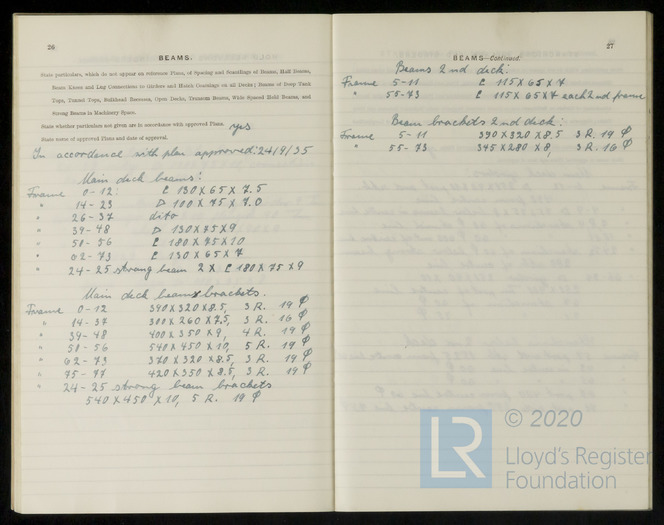 26
BEAMS.
State particulars, which do not appear on reference Plans, of Spacing and Scantlings of Beams, Half Beams,
Beam Knees and Lug Connections to Girders and Hatch Coamings on all Decks; Beams of Deep Tank
Tops, Tunnel Tops, Bulkhead Recesses, Open Decks, Transom Beams, Wide Spaced Hold Beams, and
Strong Beams in Machinery Space.
State whether particulars not given are in accordance with approved Plans. yes
State name of approved Plans and date of approval.
In accordence with plan approved: 24/9/35
Main deck beams:
Frame 0-12: [ 130 X 65 X 7.5
" 14-23 100 X 75 X 7.0
" 26-37 dito
" 39-48 130 X 75 X 9
" 50-56 [ 180 X 75 X 10
" 62-73 [ 130 X 65 X 7
" 24-25 strong beam 2 X [ 180 X 75 X 9
Main deck beams brackets.
Frame 0-12 390 X 320 X 8.5, 3 R. 19 ϕ
" 14-37 300 X 260 X 7.5, 3 R. 16 ϕ
" 39-48 400 X 350 X 9, 4 R. 19 ϕ
" 50-56 540 X 450 X 10, 5 R. 19 ϕ
" 62-73 370 X 320 X 8.5, 3 R. 19 ϕ
" 75-77 420 X 350 X 8.5, 3 R. 19 ϕ
" 24-25 strong beam brackets
540 X 450 X 10, 5 R. 19 ϕ
27
BEAMS—Continued.
Beams 2nd deck:
Frame 5-11 [ 115 X 65 X 7
" 55-73 [ 115 X 65 X 7 each 2nd frame
Beam brackets 2nd deck:
Frame 5-11 390 X 320 X 8.5 3 R. 19 ϕ
" 55-73 345 X 280 X 8, 3 R. 16 ϕ
© 2020
LR
Lloyd's Register
Foundation